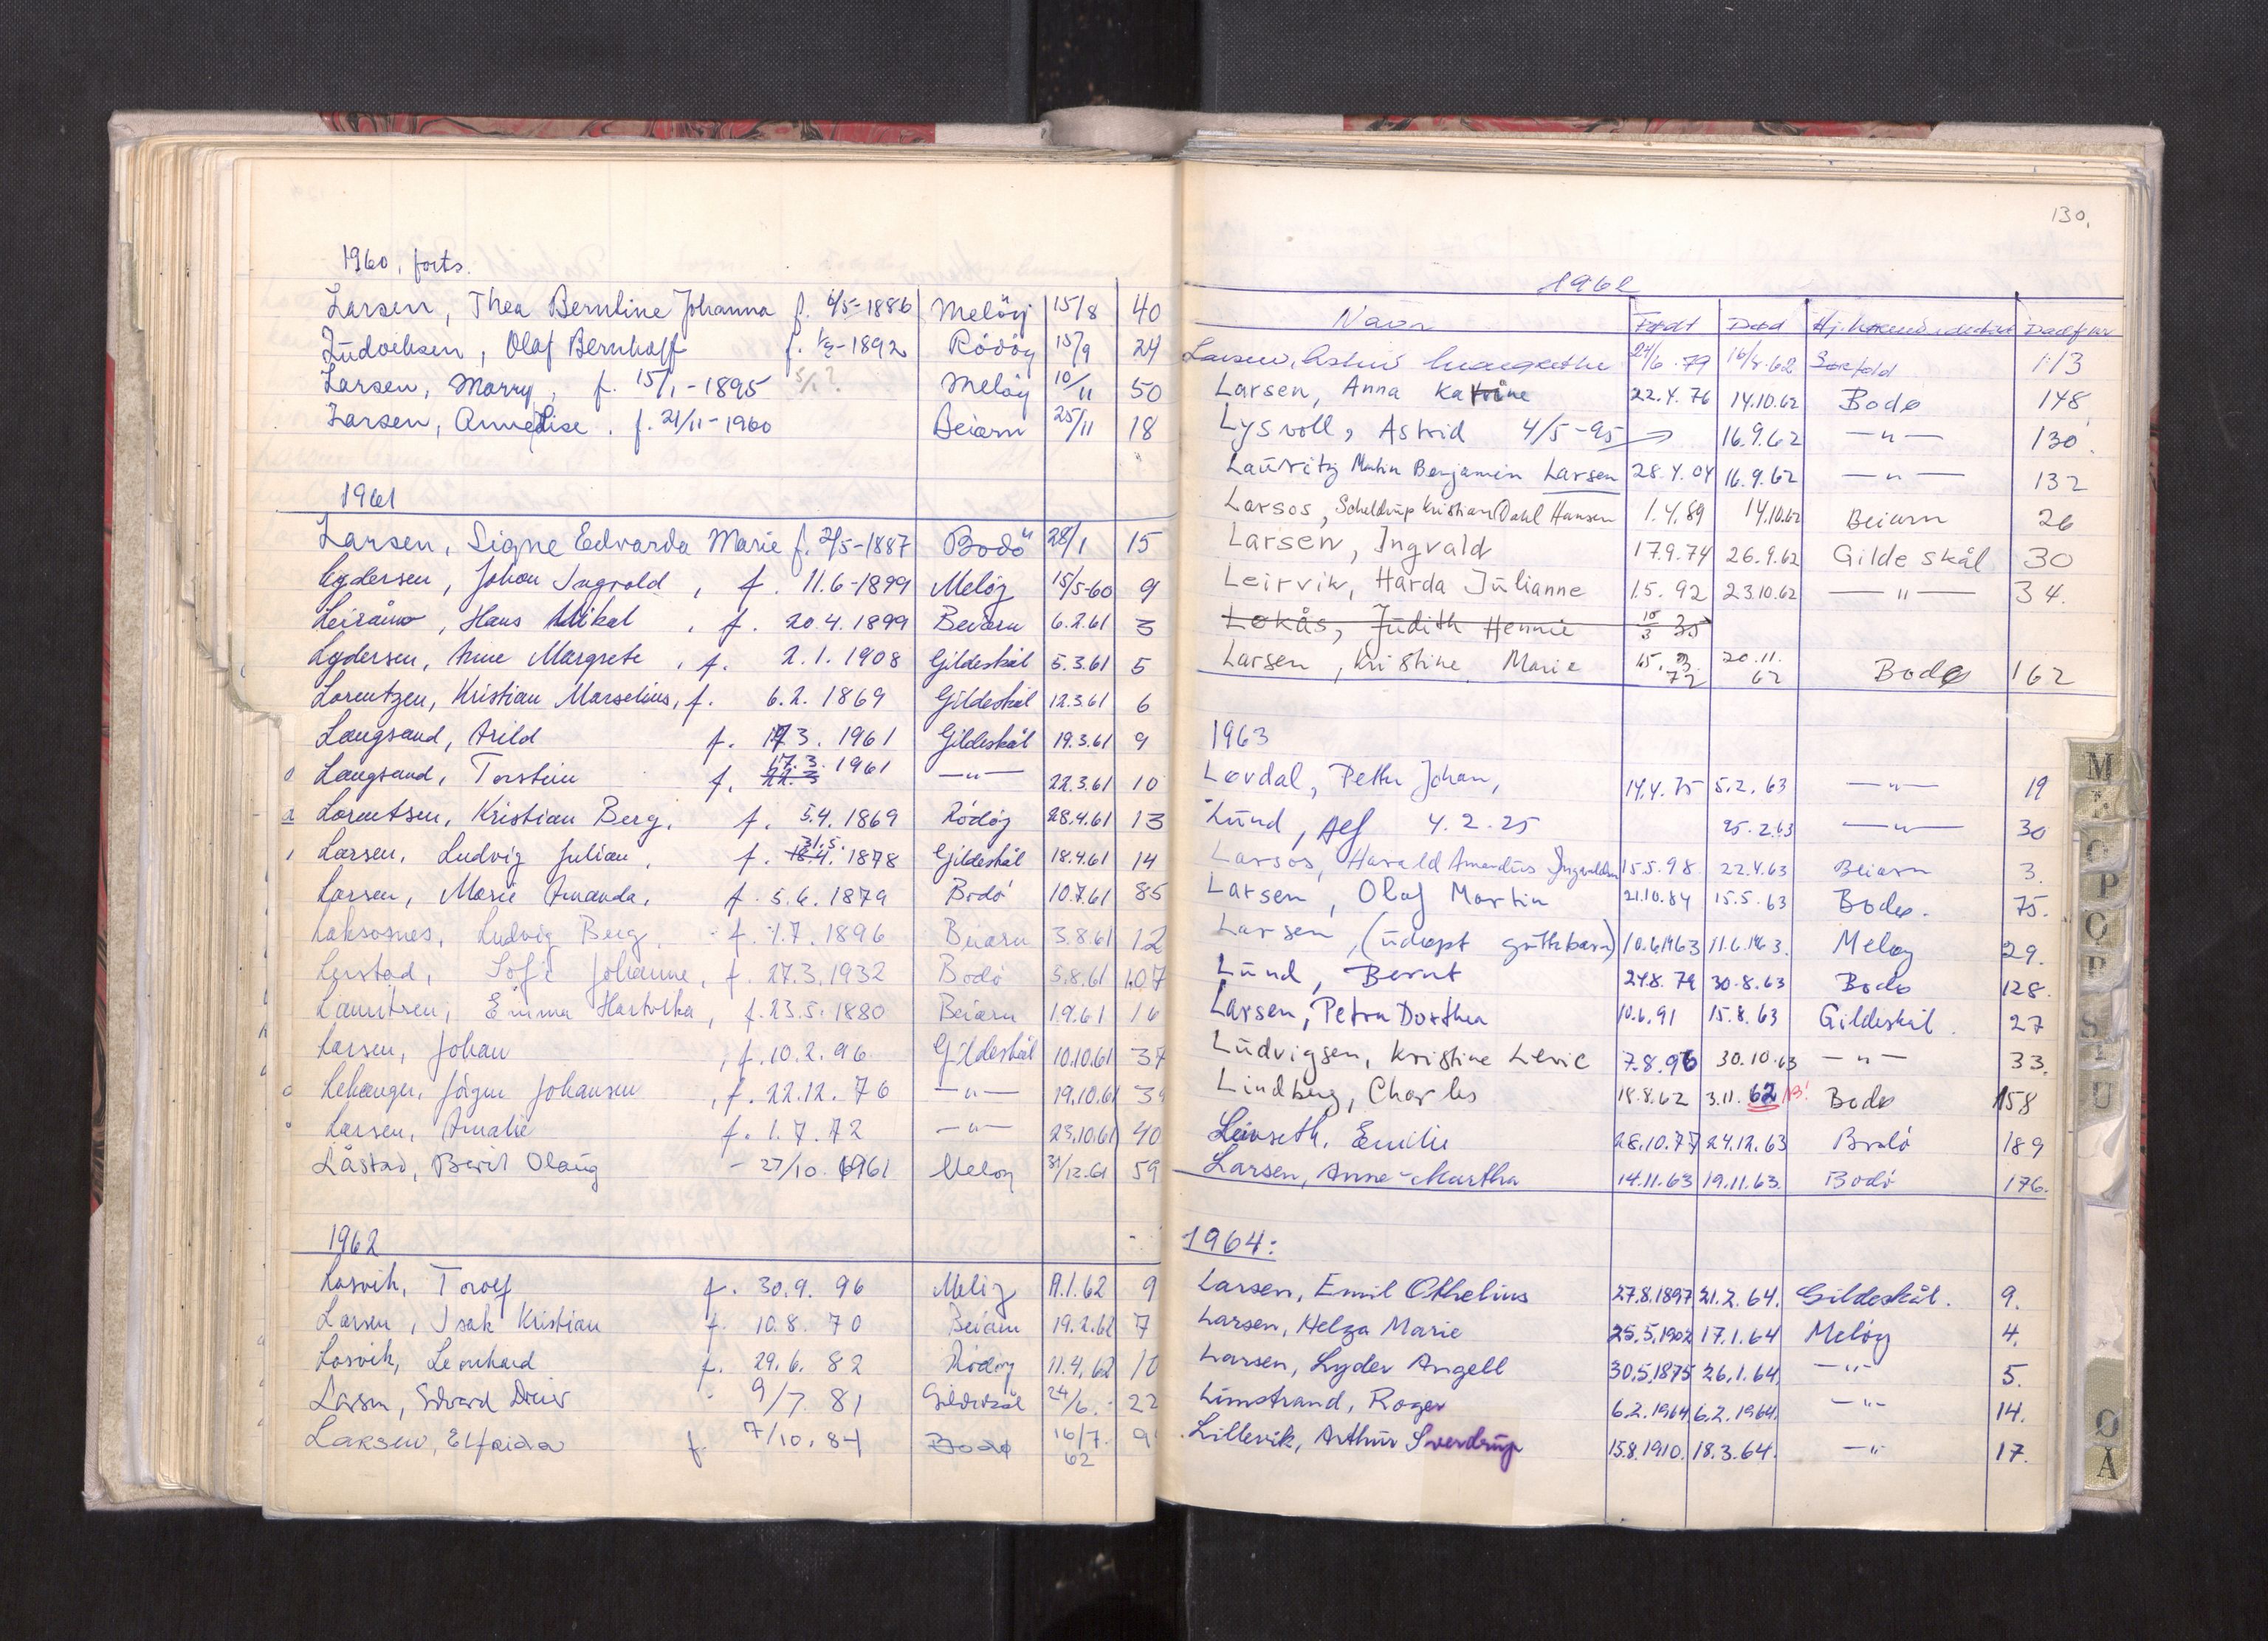 1960, forts.
Larsen, Thea Bernline Johanna f. 4/5-1886 Meløy 15/8 40
Ludviksen, Olaf Bernhoff f. 1/2-1892 Rödöy 15/9 24
Larsen, Marry, f. 15/1-1895 5/1? Meløy 10/11 50
Larsen, Annelise. f. 21/11-1960 Beiarn 25/11 18
1961
Larsen, Signe Edvarda Marie f. 2/5-1887 Bodö 28/1 15
Lydersen, Johan Ingvold, f. 11.6-1899 Meløy 15/5-60 9
Leiråmo, Hans Mikal, f. 20.4.1899 Beiarn 6.2.61 3
Lydersen, Anne Margrete, f. 2.1.1908 Gildeskål 5.3.61 5
Lorentzen, Kristian Marselius, f. 6.2.1869 Gildeskål 12.3.61 6
Langsand, Arild f. 17.3.1961 Gildeskål 19.3.61 9
Langsand, Torstein f. 22.3 17.3.1961 —"— 22.3.61 10
Lorentsen, Kristian Berg, f. 5.4.1869 Rödöy 28.4.61 13
Larsen, Ludvig Julian, f. 18.4. 31.5.1878 Gildeskål 18.4.61 14
Larsen, Marie Amanda, f. 5.6.1879 Bodö 10.7.61 85
Laksosnes, Ludvig Berg, f. 1.7.1896 Beiarn 3.8.61 12
Lerstad, Sofie Johanne, f. 27.3.1932 Bodö 3.8.61 107
Lauritsen, Emma Hartvika, f. 23.5.1880 Beiarn 1.9.61 16
Larsen, Johan, f. 10.2.96 Gildeskål 10.10.61 37
Lehanger, Jörgen Johansen, f. 22.12.76 —"— 19.10.61
Larsen, Amalie f. 1.7.72 —"— 23.10.61 40
Låstad, Beril Olaug - 27/10.1961 Meloy 31/12.61 59
1962
Losvik, Torolf f. 30.9.96 Meløy 11.1.62 9
Larsen, Isak Kristian f. 10.8.70 Beiarn 19.2.62 7
Losvik, Leonhard f. 29.6.82 Rödöy 11.4.62 10
Larsen, Edvard Dreier 9/7 81 Gildeskål 24/6. 22
Larsen, Elfrida f. 7/10.84 Bodø 16/7. 62 9
130.
1962
Navn Født Død Hj.kommune Dødsf nr
Larsen, Astrid Margrethe 24/6.79 16/8.62 Sørfold 113
Larsen, Anna Katrine 22.4.76 14.10.62 Bodø 148
Lysvoll, Astrid 4/5-95 → 16.9.62 —"— 130
Lauritz Martin Benjamin Larsen 28.4.04 16.9.62 —"— 132
Larsos, Scheldrup Kristian Dahl Hansen 1.4.89 14.10.62 Beiarn 26
Larsen, Ingvald 17.9.74 26.9.62 Gildeskål 30
Leirvik, Harda Julianne 1.5.92 23.10.62 —"— 34.
Lokås, Judith Hennie 10/3 35
Larsen, Kristine Marie 15.3.72 20.11.62 Bodø 162
1963
Lovdal, Petter Johan, 14.4.75 5.2.63 —"— 19
Lund, Alf 4.2.25 25.2.63 —"— 30
Larsos, Harald Amandus Ingvaldsen 15.5.98 22.4.63 Beiarn 3.
Larsen, Olaf Martin 21.10.84 15.5.63 Bodø. 75.
Larsen, (udøpt guttebarn) 10.6.1963 11.6.1963. Meløy 29.
Lund, Bernt 24.8.79 30.8.63 Bodø 128.
Larsen, Petra Dorthea 10.6.91 15.8.63 Gildeskål. 27
Ludvigsen, Kristine Levie 7.8.96 30.10.63 —"— 33.
Lindberg, Charles 18.8.62 3.11.62 NB! Bodø 158
Leivseth, Emilie 28.10.77 24.12.63 Bodö 189
Larsen, Anne-Martha 14.11.63 19.11.63. Bodö 176.
1964:
Larsen, Emil Othelius 27.8.1897 21.2.64. Gildeskål. 9.
Larsen, Helga Marie 25.5.1902 17.1.64 Meløy 4.
Larsen, Lyder Angell 30.5.1875 26.1.64. —"— 5.
Limstrand, Roger 6.2.1964 6.2.1964. —"— 14.
Lillevik, Arthur Sverdrup 15.8.1910. 18.3.64. —"— 17.
M
N
O
P
Q
R
S
T
U
Ø
Å